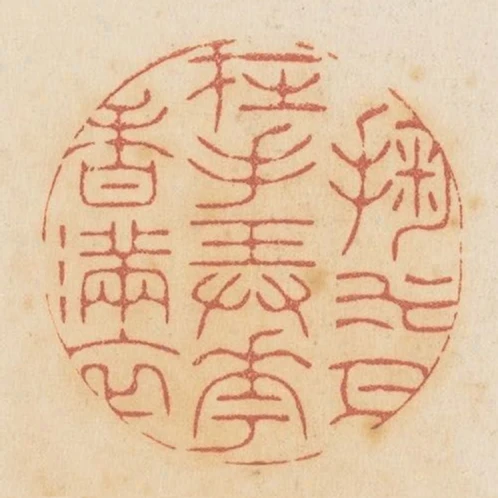 掬水月
在手弄花
香滿衣